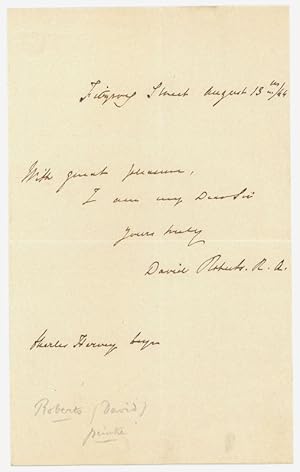 Fitzroy Street August 13th /44
With great pleasure,
I am my Dear Sir
Yours truly
David Roberts. R. A.
Hervey Esqre
Roberts (David)
peintre